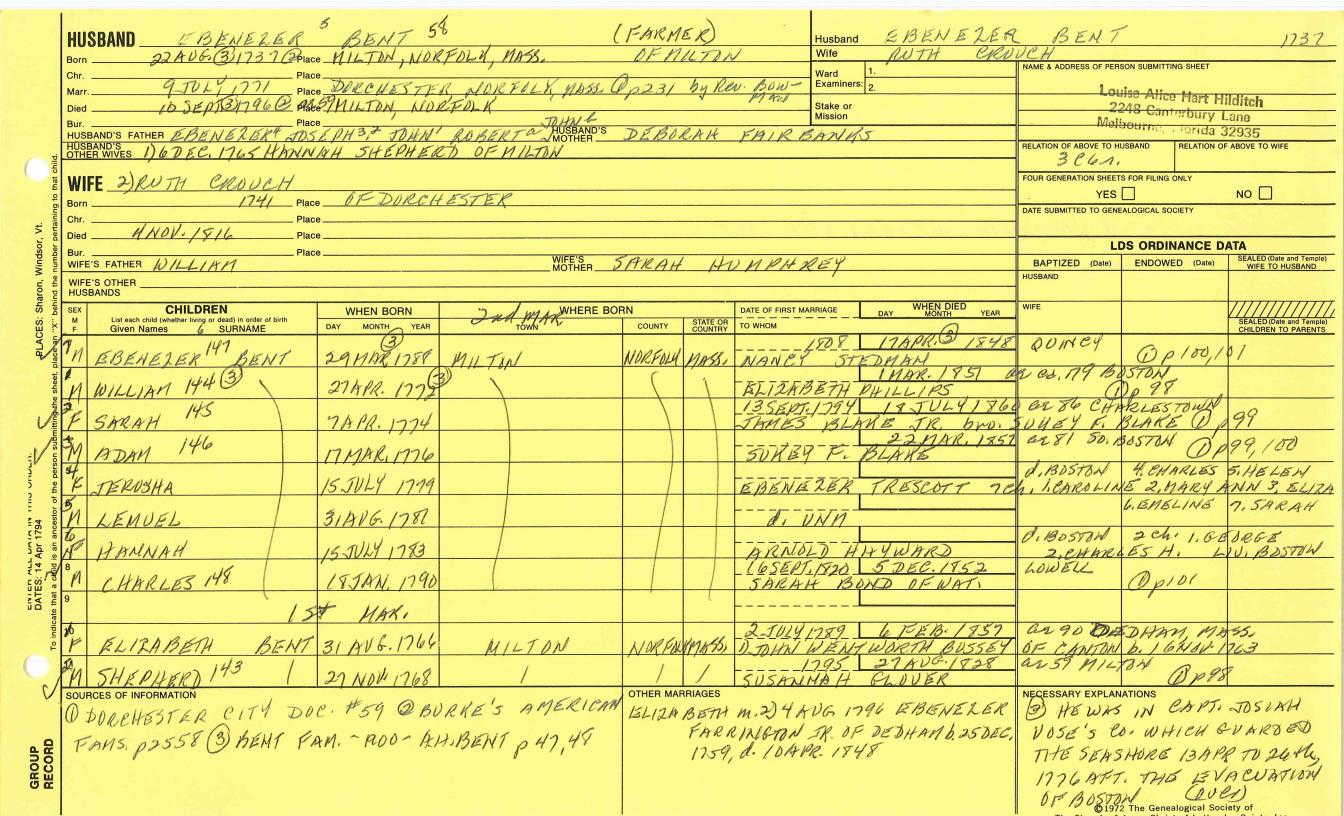 HUSBAND EBENEZER 5 BENT 58 (FARMER)
Born 22 AUG. (3) 1737 (2) Place MILTON, NORFOLK, MASS. OF MILTON
Chr. Place
Marr. 9 JULY, 1771 Place DORCHESTER, NORFOLK, MASS. (1) p231 by Rev. BOWMAN
Died 10 SEPT (3) 1796 (2) ae 59 Place MILTON, NORFOLK
Bur. Place
HUSBAND'S FATHER EBENEZER4 JOSEPH3,2 JOHN1 ROBERTa JOHNb HUSBAND'S MOTHER DEBORAH FAIRBANKS
HUSBAND'S OTHER WIVES 1) 6 DEC. 1765 HANNAH SHEPHERD OF MILTON
WIFE 2) RUTH CROUCH
Born 1741 Place OF DORCHESTER
Chr. Place
Died 4 NOV. 1816 Place
Bur. Place
WIFE'S FATHER WILLIAM WIFE'S MOTHER SARAH HUMPHREY
WIFE'S OTHER HUSBANDS
Husband EBENEZER BENT 1737
Wife RUTH CROUCH
Ward Examiners: 1.
2.
Stake or Mission
NAME & ADDRESS OF PERSON SUBMITTING SHEET
Louise Alice Hart Hilditch
2248 Canterbury Lane
Melbourne, Florida 32935
RELATION OF ABOVE TO HUSBAND RELATION OF ABOVE TO WIFE
3C6r.
FOUR GENERATION SHEETS FOR FILING ONLY
YES NO
DATE SUBMITTED TO GENEALOGICAL SOCIETY
LDS ORDINANCE DATA
BAPTIZED (Date) ENDOWED (Date) SEALED (Date and Temple) WIFE TO HUSBAND
HUSBAND
WIFE
SEALED (Date and Temple) CHILDREN TO PARENTS
SEX M F CHILDREN WHEN BORN WHERE BORN DATE OF FIRST MARRIAGE WHEN DIED
List each child (whether living or dead) in order of birth
Given Names SURNAME DAY MONTH YEAR 2nd MAR. TOWN COUNTY STATE OR COUNTRY TO WHOM DAY MONTH YEAR
M EBENEZER 147 BENT 29 MAR. 1788 (3) MILTON NORFOLK MASS. 1808 17 APR. (3) 1848 QUINCY
NANCY STEDMAN (1) p100,101
M WILLIAM 144 (3) 27 APR. 1772 (3) 1 MAR. 1851 ae ca. 79 BOSTON
ELIZABETH PHILLIPS (1) p 98
F SARAH 145 7 APR. 1774 13 SEPT. 1794 18 JULY 1860 ae 86 CHARLESTOWN
JAMES BLAKE JR. bro. SUKEY F. BLAKE (1) p99
M ADAM 146 17 MAR. 1776 22 MAR. 1857 ae 81 SO. BOSTON
SUKEY F. BLAKE (1) p99, 100
F JERUSHA 15 JULY 1779 d. BOSTON 4. CHARLES 5. HELEN
EBENEZER TRESCOTT 7 ch. 1. CAROLINE 2. MARY ANN 3. ELIZA
6. EMELINE 7. SARAH
M LEMUEL 31 AUG. 1781 d. UNM
HANNAH 15 JULY 1783 d. BOSTON 2 ch. 1. GEORGE
ARNOLD HAYWARD 2. CHARLES H. LIV. BOSTON
8 M CHARLES 148 18 JAN. 1790 16 SEPT. 1820 5 DEC. 1852 LOWELL
SARAH BOND OF WAT. (1) p101
9 1st MAR.
F ELIZABETH BENT 31 AUG. 1766 MILTON NORFOLK MASS. 2 JULY 1789 6 FEB. 1857 ae 90 DEDHAM, MASS.
1) JOHN WENTWORTH BUSSEY OF CANTON b. 16 NOV 1763
M SHEPHERD 143 27 NOV 1768 1795 27 AUG. 1828 ae 59 MILTON
SUSANNAH GLOVER (1) p98
SOURCES OF INFORMATION
(1) DORCHESTER CITY DOC. #59 (2) BURKE'S AMERICAN
FAMS. p2558 (3) BENT FAM. - A.H. BENT p 47,48
OTHER MARRIAGES
ELIZABETH m. 2) 4 AUG 1796 EBENEZER
FARRINGTON JR. OF DEDHAM b. 25 DEC.
1759, d. 10 APR. 1848
NECESSARY EXPLANATIONS
(3) HE WAS IN CAPT. JOSIAH
VOSE'S CO. WHICH GUARDED
THE SEASHORE 13 APR TO 26th,
1776 AFT. THE EVACUATION
OF BOSTON
©1972 The Genealogical Society of
PLACES: Sharon, Windsor, Vt.
DATES: 14 Apr 1794
ENTER ALL DATA IN THIS ORDER:
To indicate that a child is an ancestor of the person submitting the sheet, place an "X" behind the number pertaining to that child.
GROUP RECORD